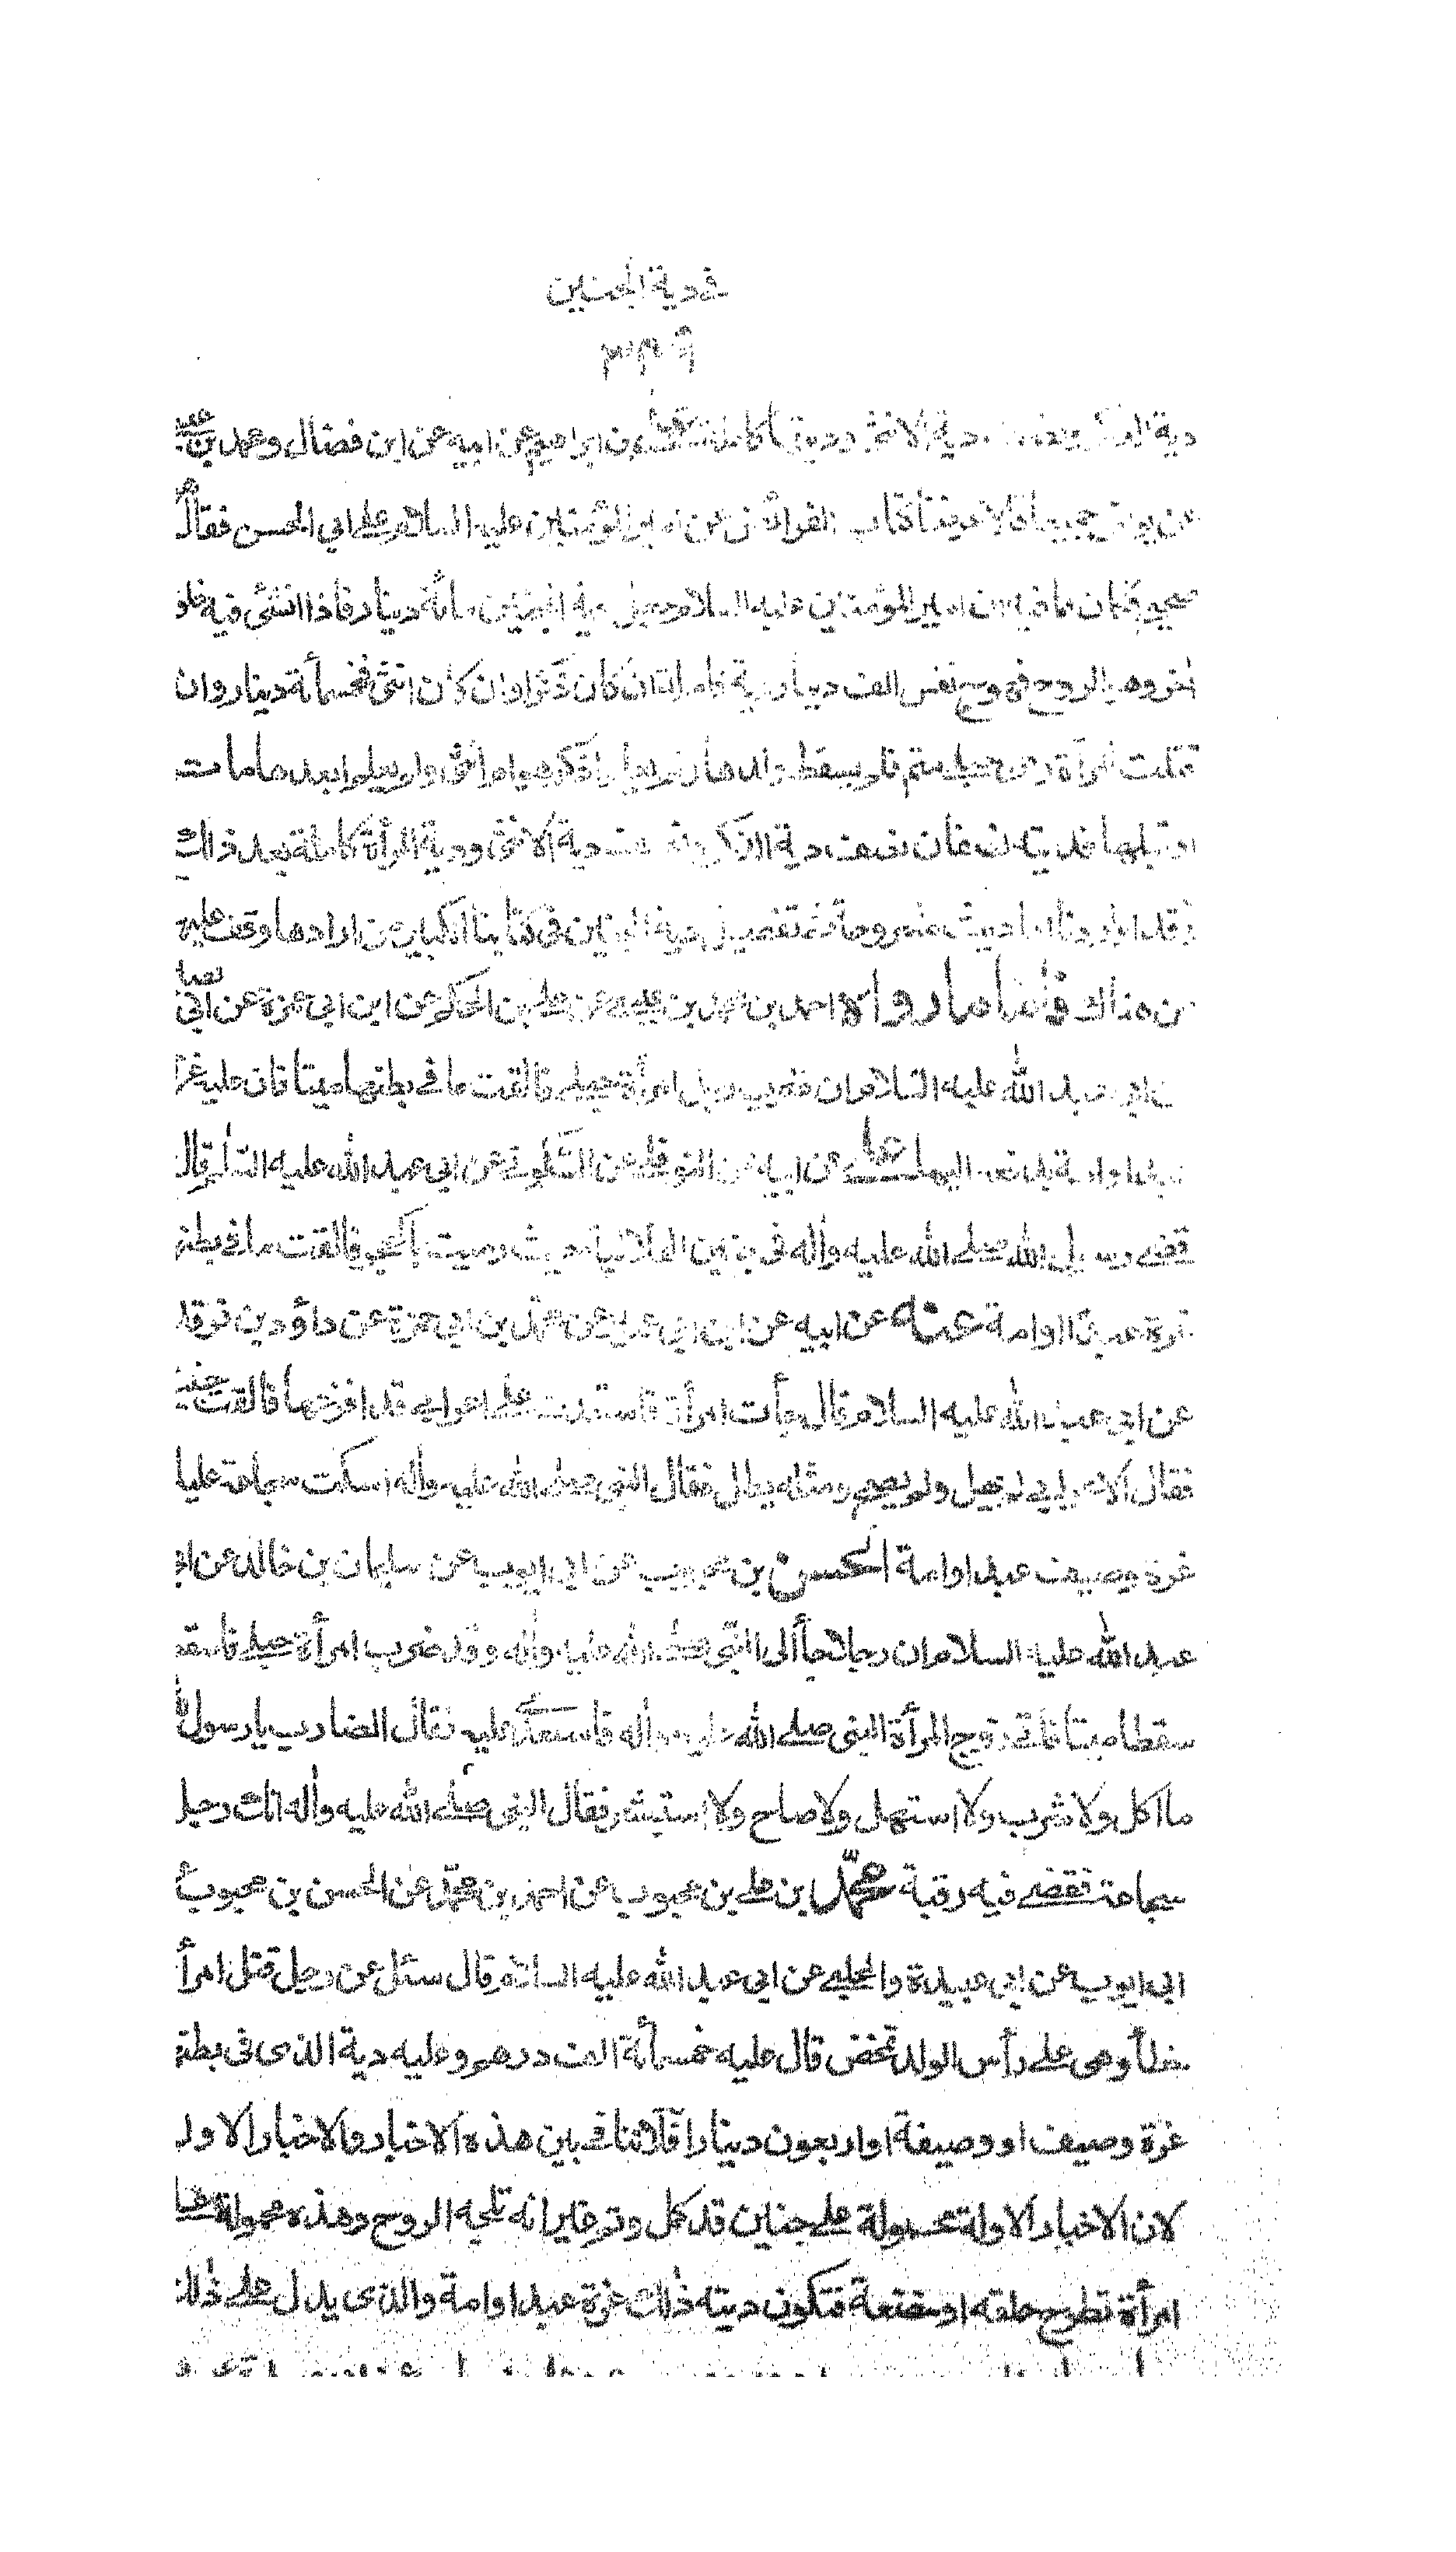 في دية الجنين
٣٤٩
دية الانثى وديتها كاملة علي بن ابراهيم عن ابيه عن ابن فضال ومحمد بن عيسى
عن يونس جميعا قالا عرضنا كتاب الفرائض عن امير المؤمنين عليه السلام على ابي الحسن فقال
صحيح فكان مما فيه ان امير المؤمنين عليه السلام جعل دية الجنين مائة دينار فاذا انشئ فيه خلق
اخر وهو الروح فهو ح نفس الف دينار دية كاملة ان كان ذكرا وان كان انثى فخمسمأة دينار وان
قتلت امرأة وهي حبلى متم فلم يسقط ولدها ولم يعلم اذكر هو ام انثى ولم يعلم ابعدها مات
او قبلها فديته نصفان نصف دية الذكر ونصف دية الانثى ودية المرأة كاملة بعد ذلك
وقد اوردنا احاديث مشروحة في تفصيل دية الجنين في كتابنا الكبير من ارادها وقف عليه
من هناك فأما ما رواه احمد بن محمد بن عيسى عن علي بن الحكم عن ابن ابي حمزة عن ابي بصير
عن ابي عبد الله عليه السلام ان ضرب رجل امرأة حبلى فالقت ما في بطنها ميتا فان عليه غرة
عبدا او امة يدفعه اليها علي عن ابيه عن النوفلي عن السكوني عن ابي عبد الله عليه السلم قال
قضى رسول الله صلى الله عليه وأله في جنين الهلالية حيث رميت بالحجر فالقت ما في بطنها
غرة عبدا او امة عنه عن ابيه عن ابن ابي عمير عن محمد بن ابي حمزة عن داؤد بن فرقد
عن ابي عبد الله عليه السلام قال جأت امرأة فاستعدت على اعرابي قد افزعها فالقت جنينا
فقال الاعرابي لم يهل ولم يصح ومثله يطل فقال النبي صلى الله عليه وأله اسكت سجاعة عليك
غرة وصيف عبد او امة الحسن بن محبوب عن ابي ايوب عن سليمان بن خالد عن ابي
عبد الله عليه السلام ان رجلا جأ الى النبي صلى الله عليه وأله وقد ضرب امرأة حبلى فاسقطت
سقطا ميتا فأتى زوج المرأة النبي صلى الله عليه وأله فاستعدى عليه فقال الضارب يا رسول الله
ما اكل ولا شرب ولا استهل ولا صاح ولا استبشر فقال النبي صلى الله عليه وأله انك رجل
سجاعة فقضى فيه رقبة محمد بن علي بن محبوب عن احمد بن محمد عن الحسن بن محبوب عن
ابي ايوب عن ابي عبيدة والحلبي عن ابي عبد الله عليه السلام قال سئل عن رجل قتل امرأة
خطأ وهي على رأس الولد تمخض قال عليه خمسة الف درهم وعليه دية الذى في بطنها
غرة وصيف او وصيفة او اربعون دينارا فلا تنافي بين هذه الاخبار والاخبار الاولة
لان الاخبار الاولة محمولة على جنين قد كمل وتم غير انه تلجه الروح وهذه محمولة على
امرأة تطرح علقة او مضغة فتكون ديته ذلك غرة عبد او امة والذى يدل على ذلك